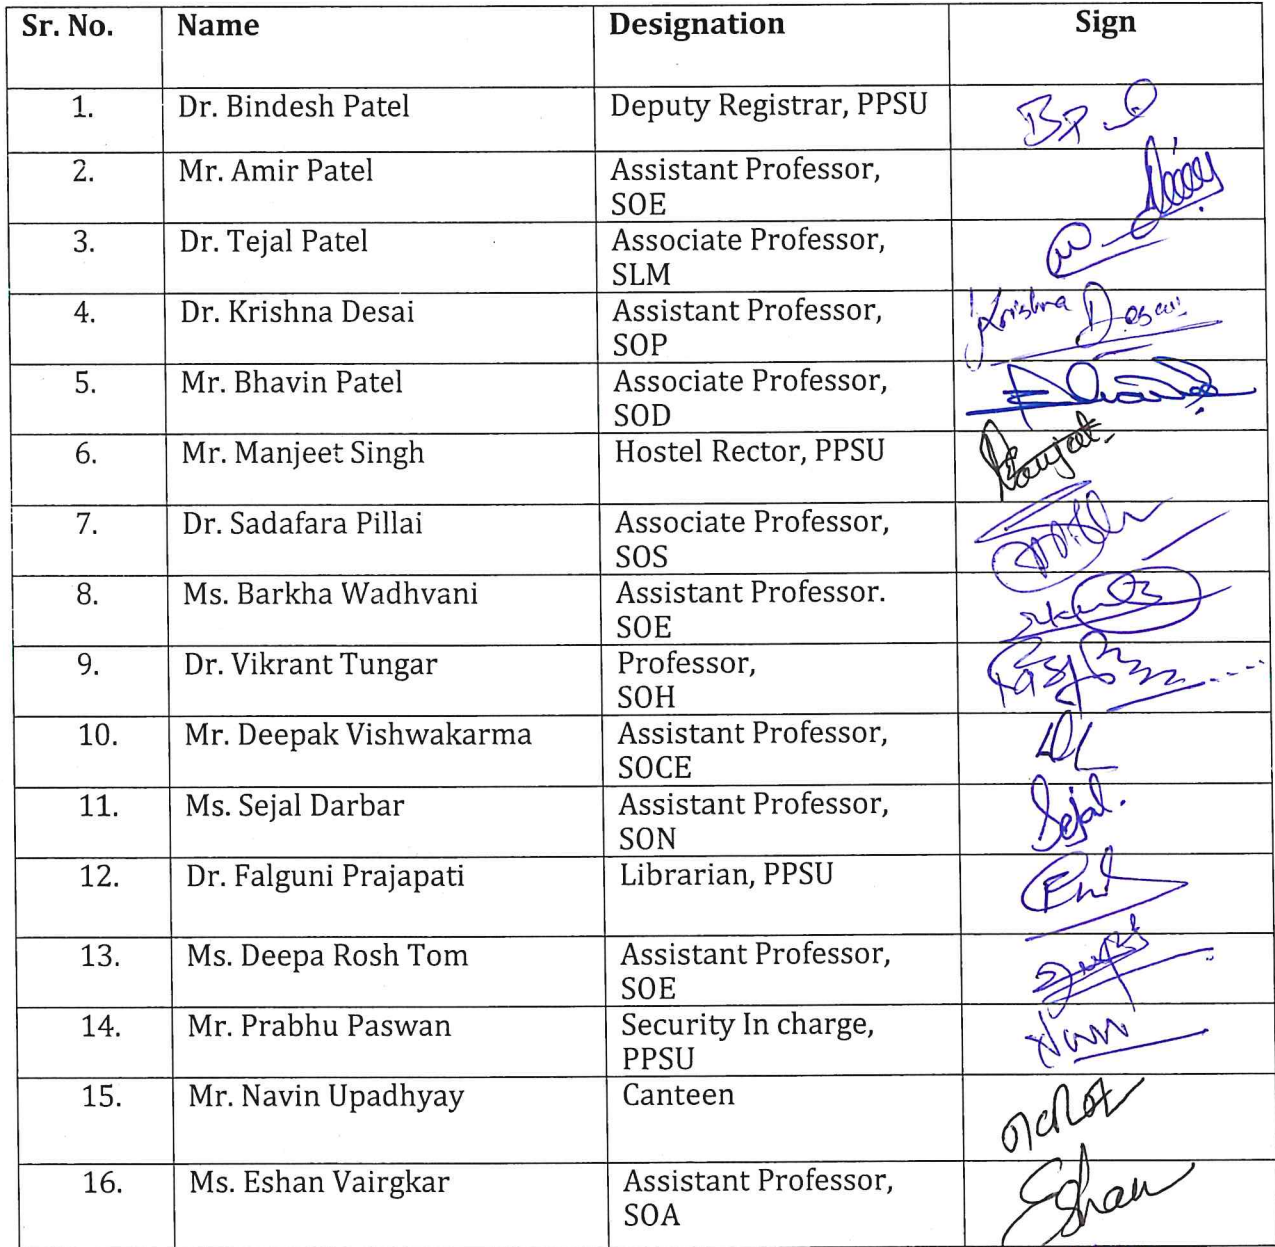 Sr. No. Name Designation Sign
1. Dr. Bindesh Patel Deputy Registrar, PPSU
2. Mr. Amir Patel Assistant Professor,
SOE
3. Dr. Tejal Patel Associate Professor,
SLM
4. Dr. Krishna Desai Assistant Professor, Krishna Desai
SOP
5. Mr. Bhavin Patel Associate Professor,
SOD
6. Mr. Manjeet Singh Hostel Rector, PPSU
7. Dr. Sadafara Pillai Associate Professor,
SOS
8. Ms. Barkha Wadhvani Assistant Professor.
SOE
9. Dr. Vikrant Tungar Professor,
SOH
10. Mr. Deepak Vishwakarma Assistant Professor,
SOCE
11. Ms. Sejal Darbar Assistant Professor, Sejal.
SON
12. Dr. Falguni Prajapati Librarian, PPSU
13. Ms. Deepa Rosh Tom Assistant Professor,
SOE
14. Mr. Prabhu Paswan Security In charge,
PPSU
15. Mr. Navin Upadhyay Canteen
16. Ms. Eshan Vairgkar Assistant Professor, Eshan
SOA